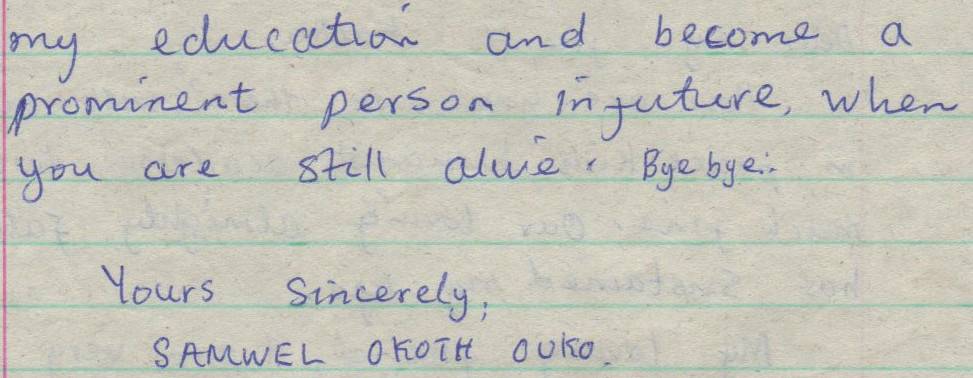 my education and become a
prominent person in future, when
you are still alive. Bye bye:.
Yours Sincerely,
SAMWEL OKOTH OUKO.